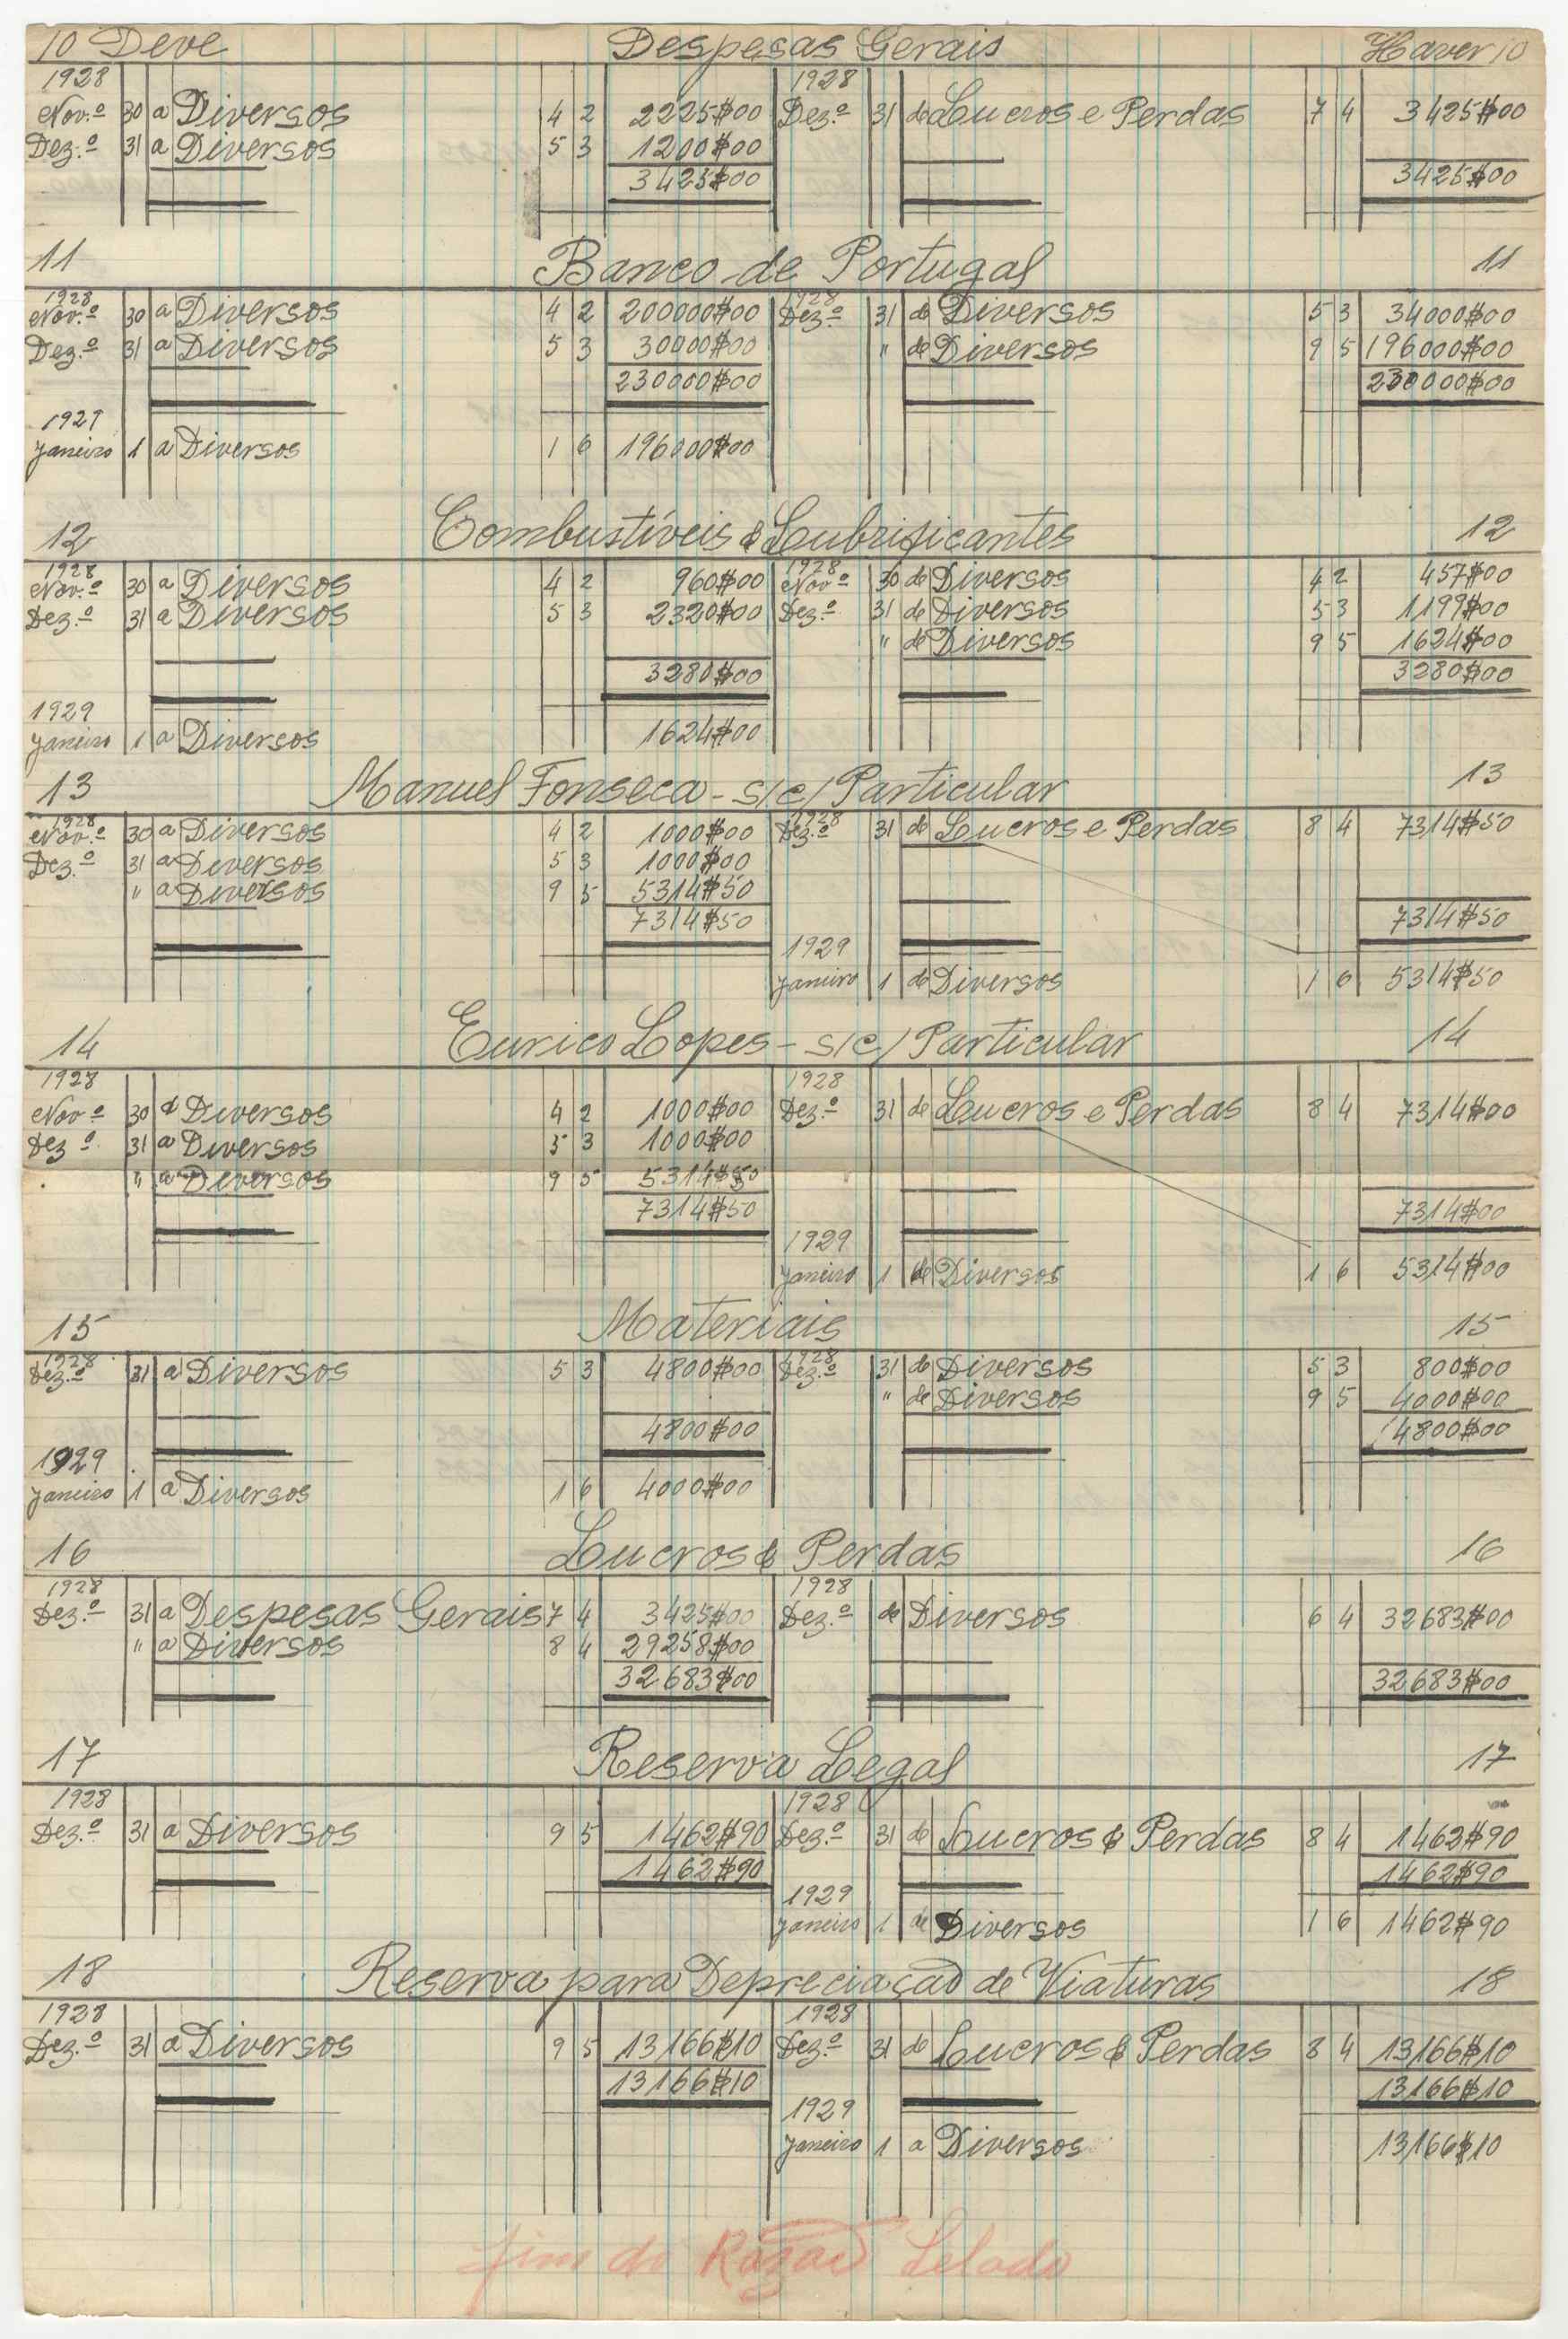 10 Deve Despesas Gerais Haver 10
1928 1928
Nov.º 30 a Diversos 4 2 2225$00 Dez.º 31 de Lucros e Perdas 7 4 3425$00
Dez.º 31 a Diversos 5 3 1200$00
3425$00 3425$00
11 Banco de Portugal 11
1928 1928
Nov.º 30 a Diversos 4 2 200000$00 Dez.º 31 de Diversos 5 3 34000$00
Dez.º 31 a Diversos 5 3 30000$00 " de Diversos 9 5 196000$00
230000$00 230000$00
1929
Janeiro 1 a Diversos 1 6 196000$00
12 Combustíveis & Lubrificantes 12
1928 1928
Nov.º 30 a Diversos 4 2 960$00 Nov.º 30 de Diversos 4 2 457$00
Dez.º 31 a Diversos 5 3 2320$00 Dez.º 31 de Diversos 5 3 1199$00
" de Diversos 9 5 1624$00
3280$00 3280$00
1929
Janeiro 1 a Diversos 1624$00
13 Manuel Fonseca - s/c/ Particular 13
1928 1928
Nov.º 30 a Diversos 4 2 1000$00 Dez.º 31 de Lucros e Perdas 8 4 7314$50
Dez.º 31 a Diversos 5 3 1000$00
" a Diversos 9 5 5314$50
7314$50 7314$50
1929
Janeiro 1 de Diversos 1 6 5314$50
14 Eurico Lopes - s/c/ Particular 14
1928 1928
Nov.º 30 a Diversos 4 2 1000$00 Dez.º 31 de Lucros e Perdas 8 4 7314$00
Dez.º 31 a Diversos 5 3 1000$00
" a Diversos 9 5 5314$50
7314$50 7314$00
1929
Janeiro 1 de Diversos 1 6 5314$00
15 Materiais 15
1928 1928
Dez.º 31 a Diversos 5 3 4800$00 Dez.º 31 de Diversos 5 3 800$00
" de Diversos 9 5 4000$00
4800$00 4800$00
1929
Janeiro 1 a Diversos 1 6 4000$00
16 Lucros & Perdas 16
1928 1928
Dez.º 31 a Despesas Gerais 7 4 3425$00 Dez.º de Diversos 6 4 32683$00
" a Diversos 8 4 29258$00
32683$00 32683$00
17 Reserva Legal 17
1928 1928
Dez.º 31 a Diversos 9 5 1462$90 Dez.º 31 de Lucros & Perdas 8 4 1462$90
1462$90 1462$90
1929
Janeiro 1 de Diversos 1 6 1462$90
18 Reserva para Depreciação de Viaturas 18
1928 1928
Dez.º 31 a Diversos 9 5 13166$10 Dez.º 31 de Lucros & Perdas 8 4 13166$10
13166$10 13166$10
1929
Janeiro 1 a Diversos 13166$10
fim do Razão Selado